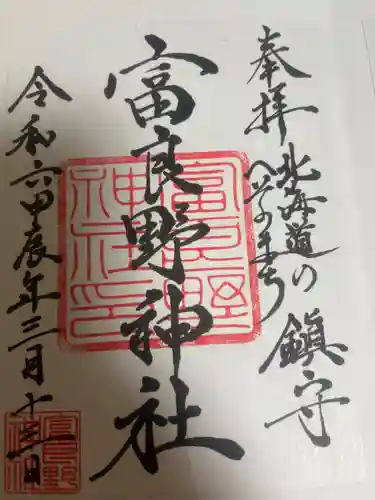 奉拝
北海道の
へそのまち
鎮守
富良野神社
富良野
神社印
令和六甲辰年三月十三日
富良野
神社